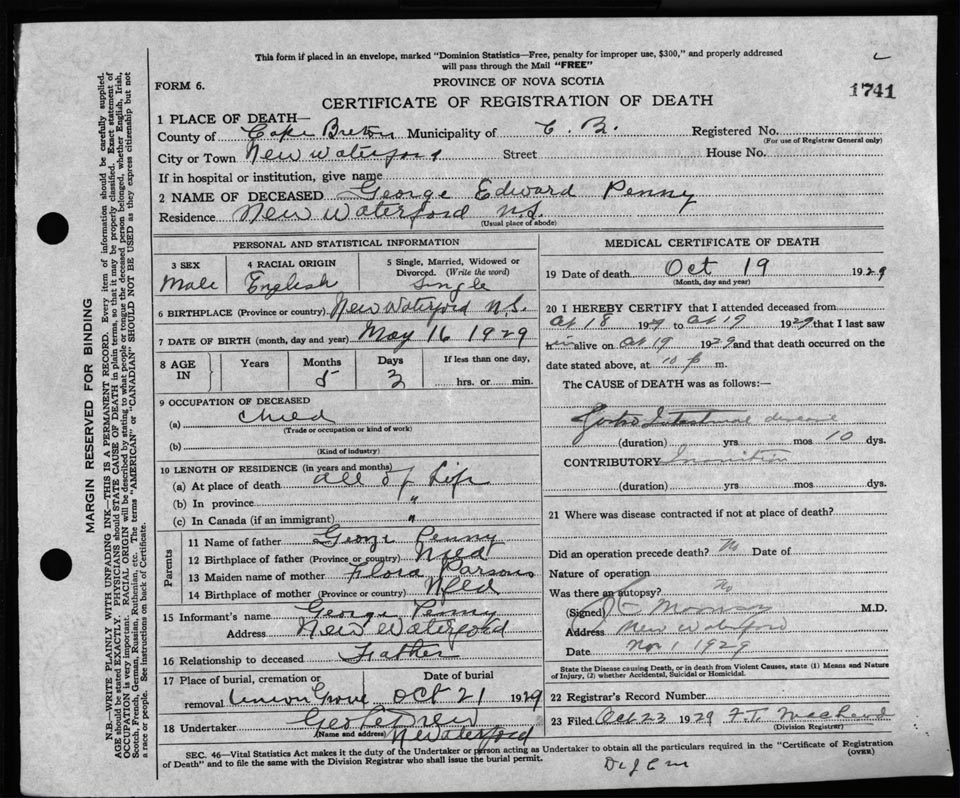 This form if placed in an envelope, marked "Dominion Statistics—Free, penalty for improper use, $300," and properly addressed
will pass through the Mail "FREE"
FORM 6.
PROVINCE OF NOVA SCOTIA
1741
CERTIFICATE OF REGISTRATION OF DEATH
1 PLACE OF DEATH—
County of Cape Breton Municipality of C. B. Registered No.
(For use of Registrar General only)
City or Town New Waterford Street House No.
If in hospital or institution, give name
2 NAME OF DECEASED George Edward Penny
Residence New Waterford N.S.
(Usual place of abode)
PERSONAL AND STATISTICAL INFORMATION
3 SEX Male
4 RACIAL ORIGIN English
5 Single, Married, Widowed or Divorced. (Write the word) Single
6 BIRTHPLACE (Province or country) New Waterford N.S.
7 DATE OF BIRTH (month, day and year) May 16 1929
8 AGE IN Years Months 5 Days 3 If less than one day, hrs. or min.
9 OCCUPATION OF DECEASED
(a) Child
(Trade or occupation or kind of work)
(b)
(Kind of industry)
10 LENGTH OF RESIDENCE (in years and months)
(a) At place of death all of Life
(b) In province "
(c) In Canada (if an immigrant) "
Parents
11 Name of father George Penny
12 Birthplace of father (Province or country) Nfld
13 Maiden name of mother Flora Parsons
14 Birthplace of mother (Province or country) Nfld
15 Informant's name George Penny
Address New Waterford
16 Relationship to deceased Father
17 Place of burial, cremation or removal Union Grove
Date of burial Oct 21 1929
18 Undertaker Geo
(Name and address) N Waterford
MEDICAL CERTIFICATE OF DEATH
19 Date of death Oct 19 1929
(Month, day and year)
20 I HEREBY CERTIFY that I attended deceased from
Oct 18 1929 to Oct 19 1929 that I last saw
him alive on Oct 19 1929 and that death occurred on the
date stated above, at 10 p m.
The CAUSE OF DEATH was as follows:—
Gastro Intestinal disease
(duration) yrs mos 10 dys.
CONTRIBUTORY Inanition
(duration) yrs mos dys.
21 Where was disease contracted if not at place of death?
Did an operation precede death? No Date of
Nature of operation
Was there an autopsy? No
(Signed) M.D.
Address New Waterford
Date Nov 1 1929
State the Disease causing Death, or in death from Violent Causes, state (1) Means and Nature
of Injury, (2) whether Accidental, Suicidal or Homicidal.
22 Registrar's Record Number
23 Filed Oct 23 1929 F.T. MacLeod
(Division Registrar)
SEC. 46—Vital Statistics Act makes it the duty of the Undertaker or person acting as Undertaker to obtain all the particulars required in the "Certificate of Registration
of Death" and to file the same with the Division Registrar who shall issue the burial permit.
(OVER)
MARGIN RESERVED FOR BINDING
N.B.—WRITE PLAINLY WITH UNFADING INK—THIS IS A PERMANENT RECORD. Every item of information should be carefully supplied.
AGE should be stated EXACTLY. PHYSICIANS should STATE CAUSE OF DEATH in plain terms, so that it may be properly classified. Exact statement of
OCCUPATION is very important. RACIAL ORIGIN will be described by stating to what people or tongue the deceased person belonged, whether English, Irish,
Scotch, French, German, Russian, Ruthenian, etc. The terms "AMERICAN" or "CANADIAN" SHOULD NOT BE USED as they express citizenship but not
a race or people. See instructions on back of Certificate.